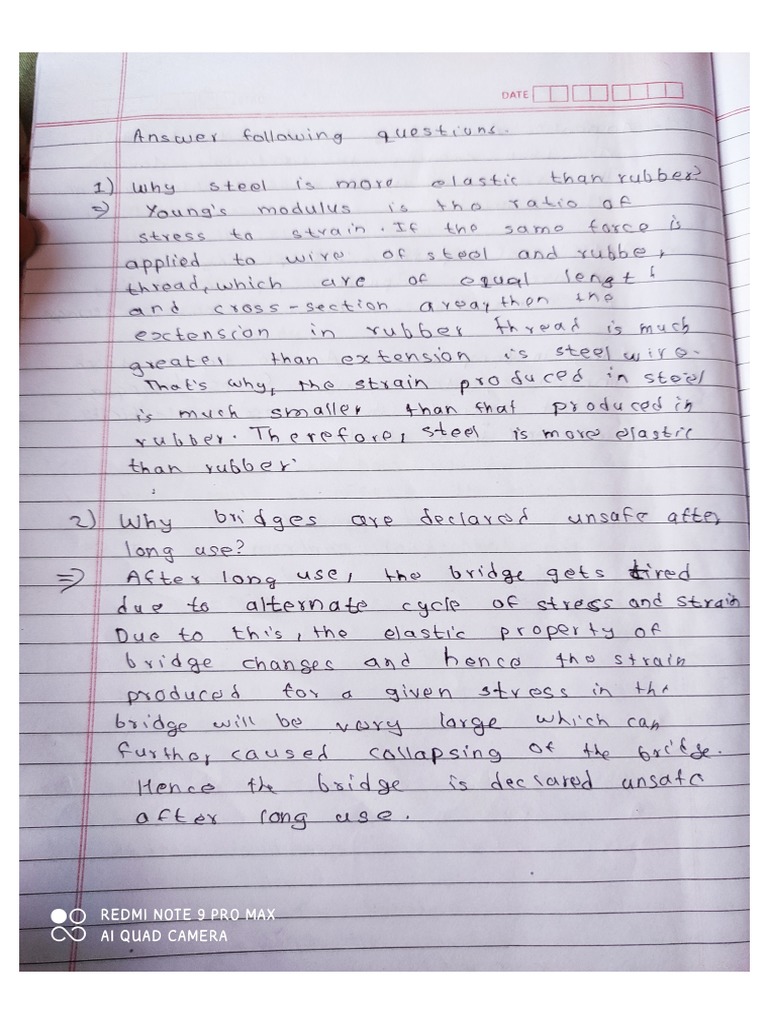 DATE
Answer following questions.
1) Why steel is more elastic than rubber?
=> Young's modulus is the ratio of
stress to strain. If the same force is
applied to wire of steel and rubber
thread, which are of equal lengt
and cross-section area, then the
exctension in rubber thread is much
greater than extension is steel wire.
That's why, the strain produced in steel
is much smaller than that produced in
rubber. Therefore, steel is more elastic
than rubber.
2) Why bridges are declared unsafe after
long use?
=> After long use, the bridge gets tired
due to alternate cycle of stress and strain
Due to this, the elastic property of
bridge changes and hence the strain
produced for a given stress in the
bridge will be very large which can
further caused collapsing of the bridge.
Hence the bridge is declared unsafe
after long use.
REDMI NOTE 9 PRO MAX
AI QUAD CAMERA